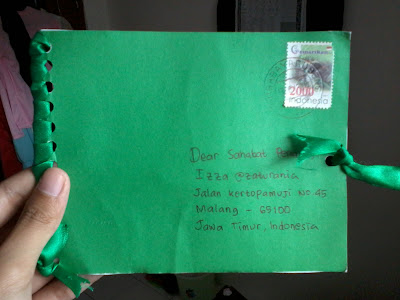 2000
Indonesia
Dear Sahabat
Izza @zaturania
Jalan Kertopamuji No 45
Malang - 65100
Jawa Timur, Indonesia